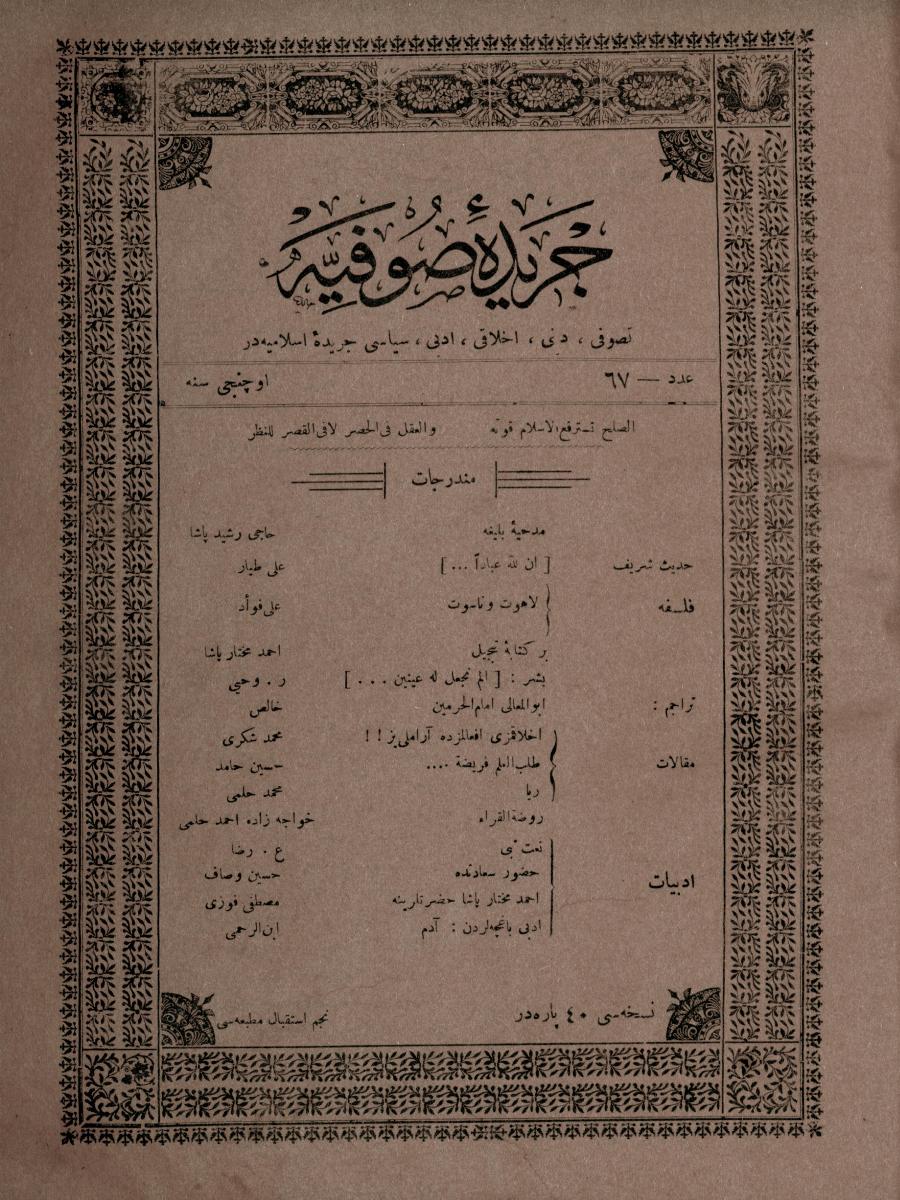 جريدۀ صوفيه
تصوفی ، دينی ، اخلاقی ، ادبی ، سياسی جريدۀ اسلاميه‌در
عدد — ٦٧ اوچنجی سنه
الصلح تسترفع الاسلام قوته والعقل فی الحصر لا فی القصر للنظر
مندرجات
مدحيۀ بليغه حاجی رشيد پاشا
حديث شريف [ ان لله عباداً ... ] علی طيار
فلسفه لاهوت وناسوت علی فوأد
بر كتابۀ تبجيل احمد مختار پاشا
بشر : [ الم نجعل له عينين . . . ] ر . وحيی
تراجم : ابوالمعالی امام‌الحرمين خالص
اخلاقمزی افعالمزده آراملی‌يز ! ! محمد شكری
مقالات طلب‌العلم فريضة .... حسين حامد
ريا محمد حلمی
روضةالقراء خواجه زاده احمد حلمی
نعت نبی ع . رضا
حضور سعادتده حسين وصاف
ادبيات
احمد مختار پاشا حضرتلرينه مصطفی فوزی
ادبی باغچه‌لردن : آدم ابن‌الرحمی
نسخه‌سی ٤٠ پاره‌در نجم استقبال مطبعه‌سی